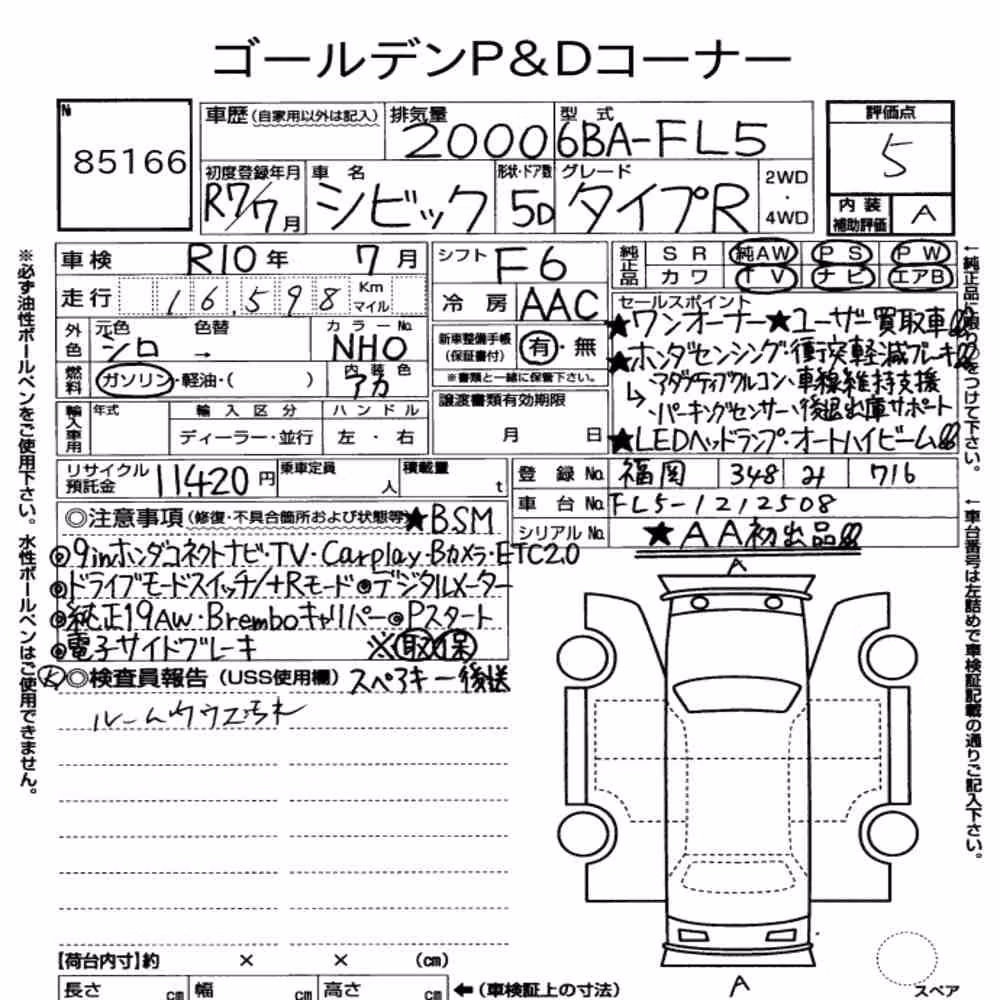 ゴールデンP&Dコーナー
№ 85166
車歴(自家用以外は記入) 排気量 2000 型式 6BA-FL5 評価点 5
初度登録年月 R7/7月 車名 シビック 形状・ドア数 5D グレード タイプR 2WD・4WD 内装補助評価 A
車検 R10年 7月 シフト F6 純正品 SR 純AW PS PW
カワ TV ナビ エアB
走行 16,598 Km マイル 冷房 AAC セールスポイント
★ワンオーナー★ユーザー買取車!!!
外色 元色 シロ 色替 → カラーNo. NHO 新車整備手帳(保証書付) 有・無
★ホンダセンシング・衝突軽減ブレーキ!!!
燃料 ガソリン・軽油・( ) 内装色 アカ ※書類と一緒に保管下さい。
↳アダプティブクルコン・車線維持支援
・パーキングセンサー・後退出庫サポート
輸入車用 年式 輸入区分 ハンドル 譲渡書類有効期限
ディーラー・並行 左・右 月 日
★LEDヘッドランプ・オートハイビーム!!!
リサイクル預託金 11,420円 乗車定員 人 積載量 t 登録No. 福岡 348 み 716
車台No. FL5-1212508
◎注意事項(修復・不具合箇所および状態等)★BSM シリアルNo. ★AA初出品!!!
◎9inホンダコネクトナビ・TV・Carplay・Bカメラ・ETC2.0
◎ドライブモードスイッチ/+Rモード◎デジタルメーター
◎純正19AW・Bremboキャリパー◎Pスタート
◎電子サイドブレーキ ※取保
Ⓚ◎検査員報告(USS使用欄)スペアキー後送
ルームウワコ汚れ
A
A
スペア
【荷台内寸】約 × × (cm)
長さ cm 幅 cm 高さ cm ←(車検証上の寸法)
※必ず油性ボールペンをご使用下さい。水性ボールペンはご使用できません。
←純正品に限り○をつけて下さい。
←車台番号は左詰めで車検証記載の通りご記入下さい。